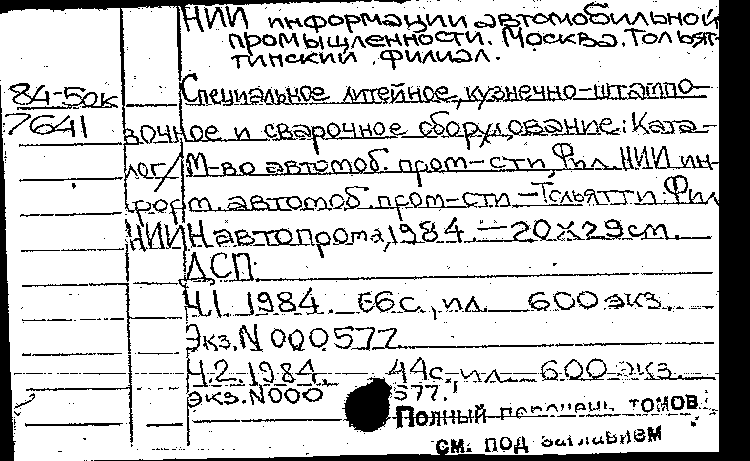 НИИ информации автомобильной
промышленности. Москва. Тольят-
тинский филиал.
84-5ок
7641
Специальное литейное, кузнечно-штампо-
вочное и сварочное оборудование: Ката-
лог/М-во автомоб. пром-сти Фил. НИИ ин-
форм. автомоб. пром-сти. – Тольятти: Фил
НИИНавтопрома, 1984. – 20х29см.
ДСП
Ч.1 1984. 66с., ил. 600 экз.
Экз. N 000577
Ч.2. 1984. 44с. ил. 600 экз.
экз. N000 577.
Полный перечень томов
см. под заглавием